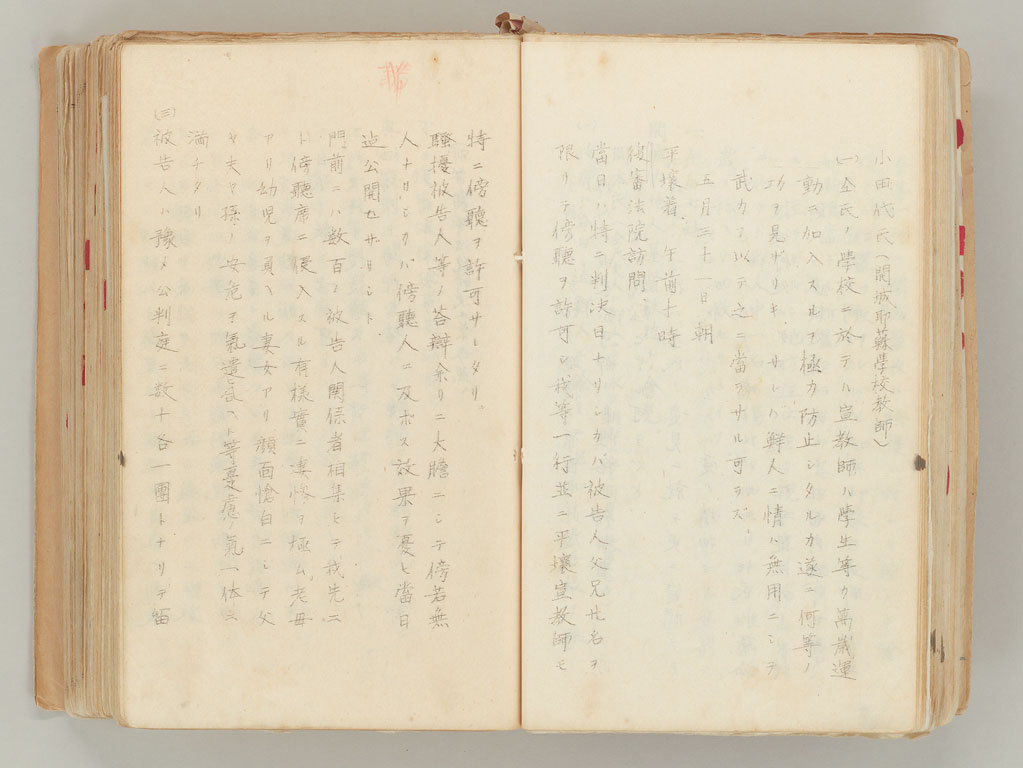 小田代氏（開城耶蘇學校教師）
(一)仝氏ノ學校ニ於テハ宣教師ハ學生等カ萬歳運
動ニ加入スルヲ極力防止シタルカ遂ニ何等ノ
功ヲ見ザリキ サレハ鮮人ニ情ハ無用ニシテ
武力ヲ以テ之ニ當ラサル可ラズ
五月三十一日 朝
平壤着 午前十時
覆審法院訪問
當日ハ特ニ判決日ナリシカバ被告人父兄廿名ヲ
限リテ傍聽ヲ許可シ我等一行並ニ平壤宣教師モ
特ニ傍聽ヲ許可サレタリ。
騷擾被告人等ノ答辯余リニ大膽ニシテ傍若無
人ナリシカバ傍聽人ニ及ボス效果ヲ憂ヒ當日
迄公開セザリシト
門前ニハ数百ノ被告人関係者相集ヒテ我先ニ
ト傍聽席ニ侵入スル有樣實ニ凄惨ヲ極ム、老母
アリ幼児ヲ負ヘル妻女アリ顔面愴白ニシテ父
ヤ夫ヤ孫ノ安危ヲ氣遣ヘト等憂慮ノ氣一体ニ
満チタリ
(三)被告人ハ豫メ公判庭ニ数十各一團トナリテ笛